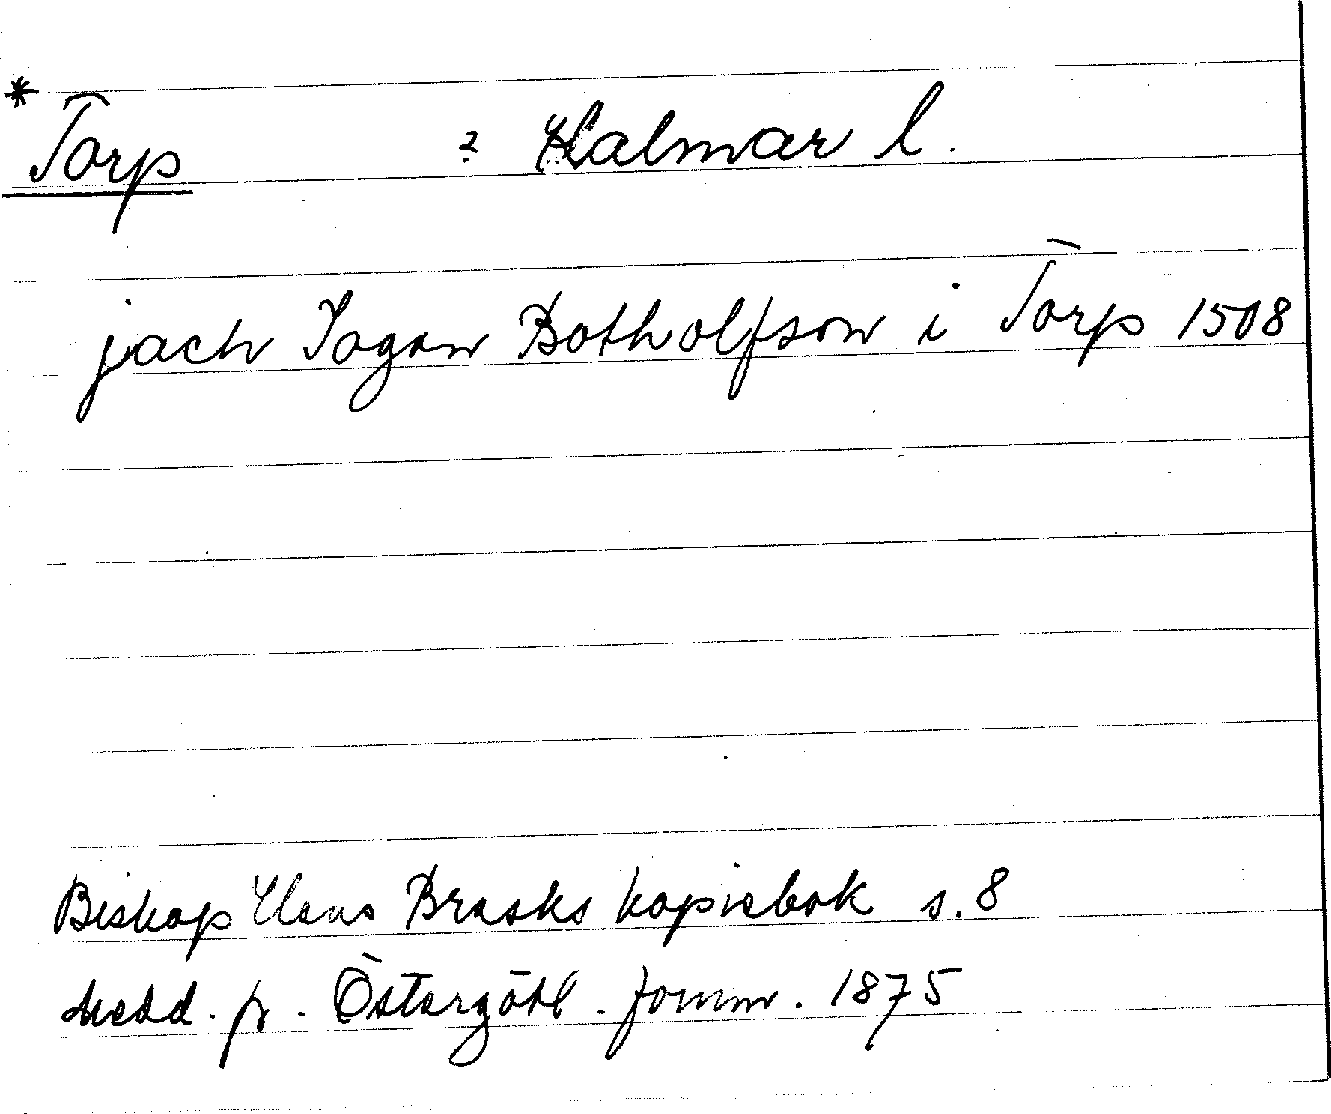 * Torp ? Kalmar l.
jach Jogan Botholfson i Torp 1508
Biskop Hans Brasks kopiebok s. 8
Medd. fr. Östergötl. fornm. 1875